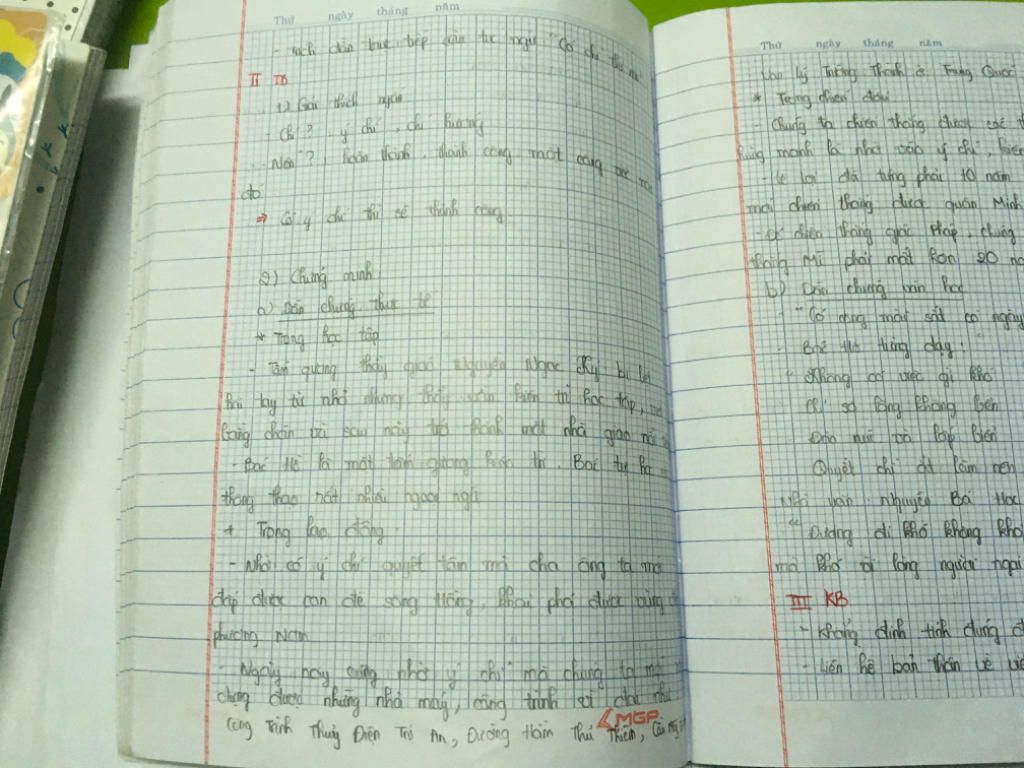 Thứ ngày tháng năm
- Trích dẫn trực tiếp câu tục ngữ "Có chí thì nên
II TB
1) Giải thích ngắn
- Chí? ý chí, chí hướng
- Nên? hoàn thành, thành công một công việc nào
đó
=> Có ý chí thì sẽ thành công
2) Chứng minh
a) Dẫn chứng thực tế
* Trong học tập
- Tấm gương thầy giáo Nguyễn Ngọc Ký bị liệt
hai tay từ nhỏ nhưng thầy vẫn kiên trì học tập,
bằng chân và sau này trở thành một nhà giáo
- Bác Hồ là một tấm gương kiên trì. Bác tự học
thông thạo rất nhiều ngoại ngữ
* Trong lao động
- Nhờ có ý chí quyết tâm mà cha ông ta mới
đắp được con đê sông Hồng khai phá được vùng
phương Nam
- Ngày nay cũng nhờ ý chí mà chúng ta mới
dựng được những nhà máy, công trình vĩ đại như
công trình Thuỷ Điện Trị An, Đường Hầm Thủ Thiêm, Cầu Mỹ
MGP
Thứ ngày tháng năm
Vạn Lý Trường Thành ở Trung Quốc
* Trong chiến đấu
- Chúng ta chiến thắng được các
hùng mạnh là nhờ vào ý chí, kiên
- Lê Lợi đã từng phải 10 năm
mới chiến thắng được quân Minh
- Để chiến thắng giặc Pháp, chúng
thắng Mĩ phải mất hơn 20 
b) Dẫn chứng văn học
- "Có công mài sắt có ngày
- Bác Hồ từng dạy:
"Không có việc gì khó
Chỉ sợ lòng không bền
Đào núi và lấp biển
Quyết chí ắt làm nên
Nhà văn Nguyễn Bá Học
"Đường đi khó không khó
mà khó vì lòng người ngại
III KB
- Khẳng định tính đúng
- Liên hệ bản thân về